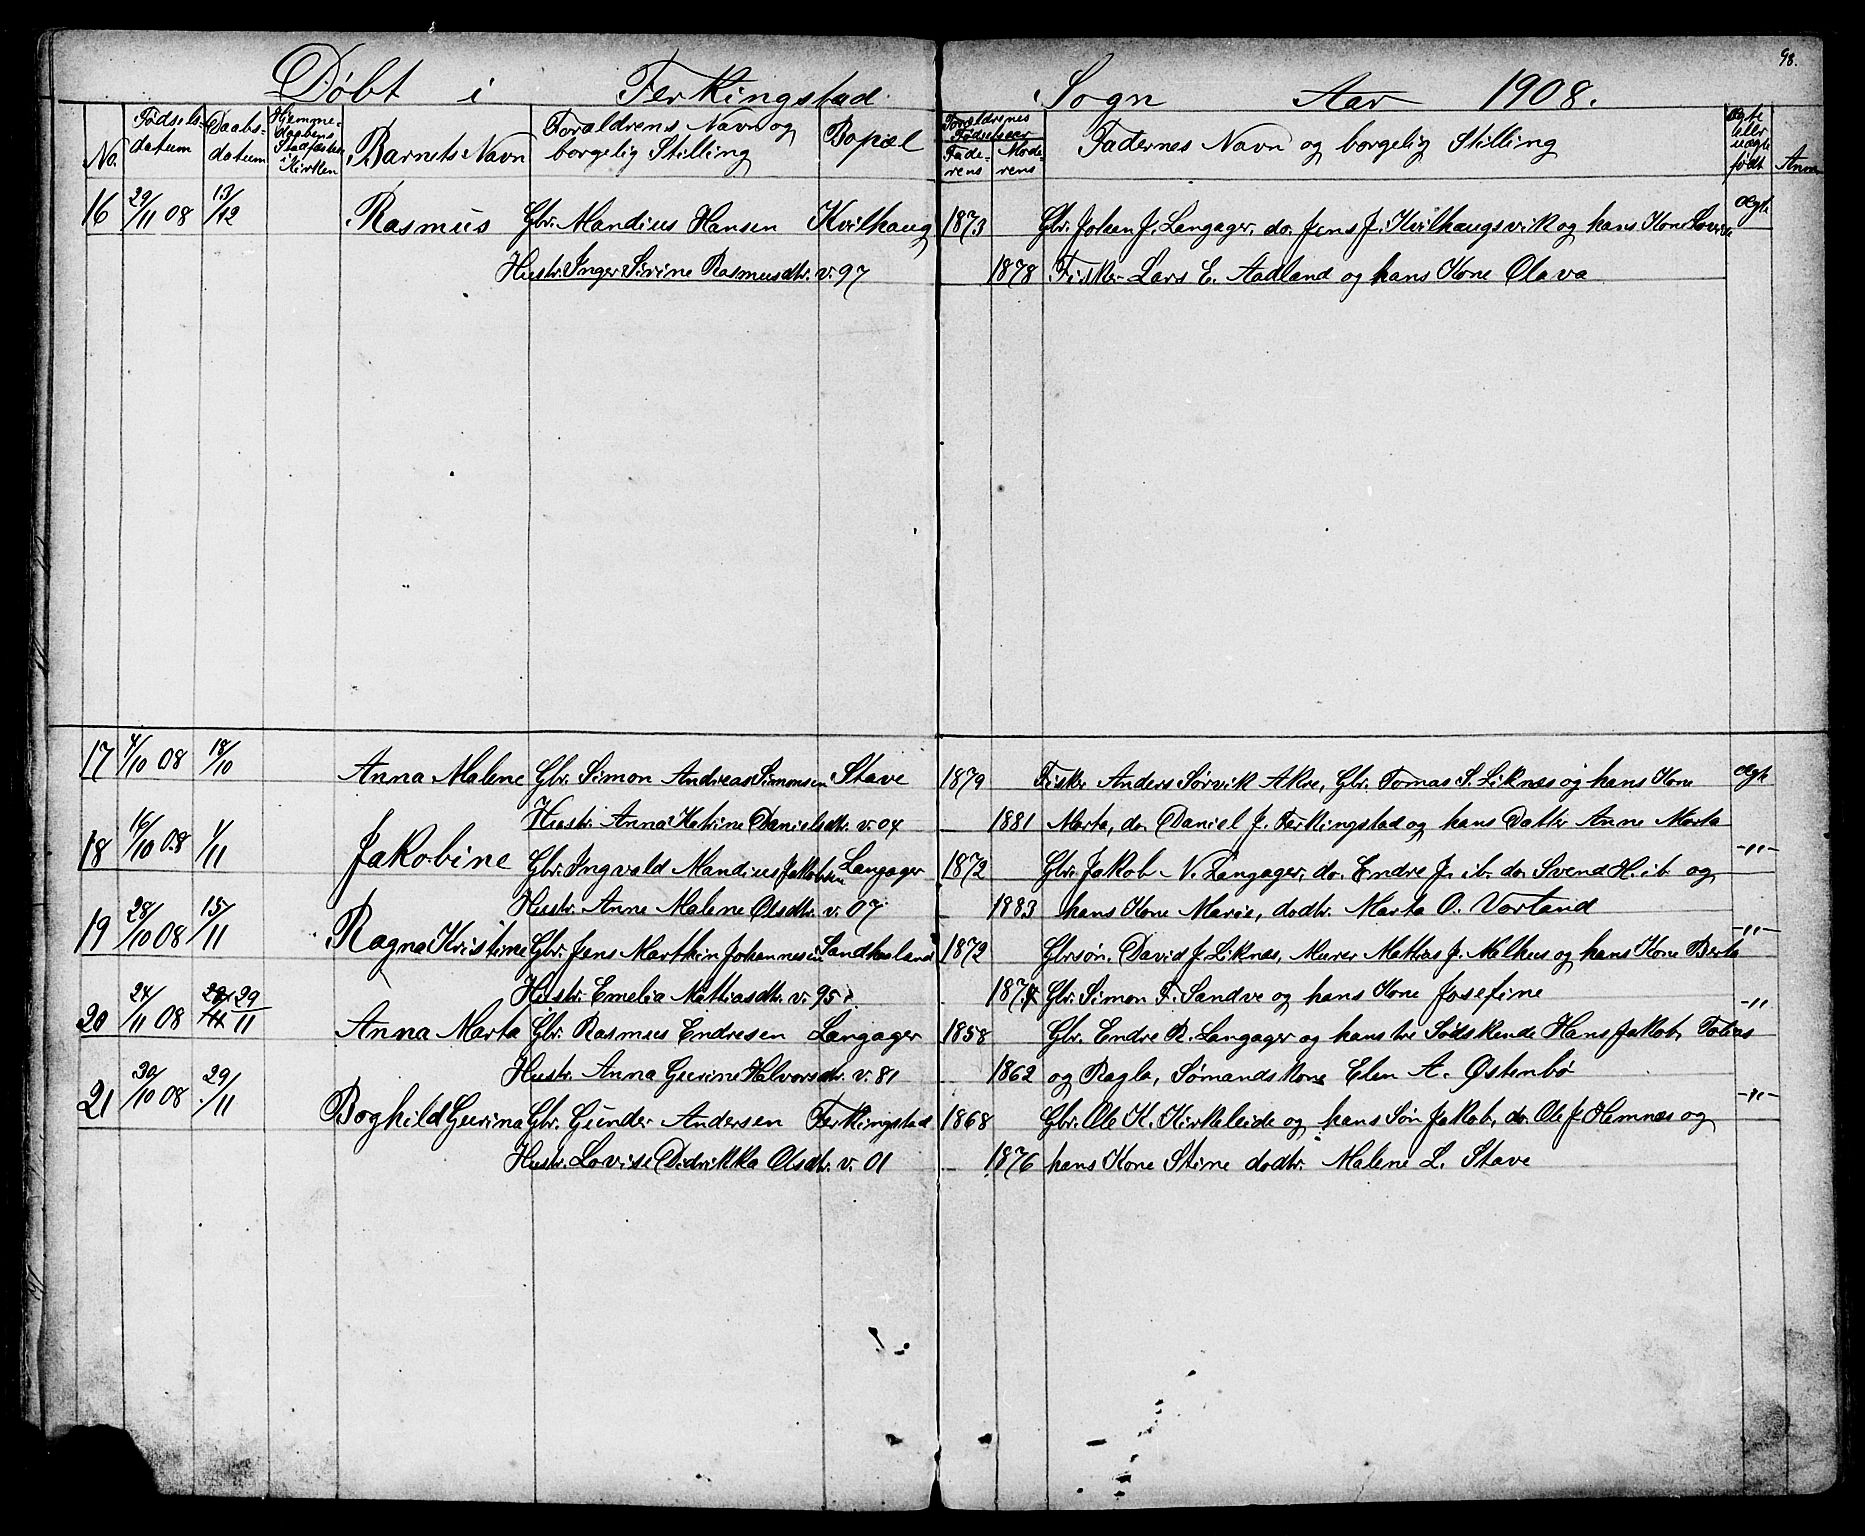 98.
Døbt i Ferkingstad Sogn Aar 1908.
No. Fødsels-datum Daabs-datum Hjemme-daabens Stadfæstelse i Kirken Barnets Navn Forældrens Navn og borgelig Stilling Bopæl Forældrenes Fødselsaar Fade-rens Mode-rens Fadernes Navn og borgelig Stilling Ægte eller uægte født Anm
16 29/11 08 13/12 Rasmus Gbr. Mandius Hansen Kvilhaug 1873 Gbr. Johan J. Langager, do. Jens J. Kvilhaugsvik og hans Kone Lovise ægte
Hustr. Inger Sirine Rasmusdtr. v. 97 1878 Fisker Lars E. Aadland og hans Kone Olava
17 4/10 08 18/10 Anna Malene Gbr. Simon Andreas Simonsen Stave 1879 Fisker Anders Sørvik Akre, Gbr. Tomas S. Liknæs og hans Kone ægte
Hustr. Anna Katrine Danielsdtr. v. 04 1881 Marta, do. Daniel J. Ferkingstad og hans Datter Anne Marta
18 16/10 08 1/11 Jakobine Gbr. Ingvald Mandius Jakobsen Langager 1872 Gbr. Jakob N. Langager, do. Endre J. ib. do. Svend H. ib. og -"-
Hustr. Anne Malene Olsdtr. v. 07 1883 hans Kone Marie, dodtr. Marta O. Vorland
19 28/10 08 15/11 Ragna Kristine Gbr. Jens Marthin Johannesen Sandhaaland 1872 Gbrsøn. David J. Liknes, Murer Mattias J. Melhus og hans Kone Berta -"-
Hustr. Emelia Mathiasdtr. v. 95. 1874 Gbr. Simon T. Sandve og hans Kone Josefine
20 24/11 08 29/11 Anna Marta Gbr. Rasmus Endresen Langager 1858 Gbr. Endre R. Langager og hans tre Sødskende Hans Jakob, Tobias -"-
Hustr. Anna Gurine Halvorsdtr. v. 81 1862 og Ragla, Sømands Kone Elen A. Østenbø
21 30/10 08 29/11 Boghild Gurina Gbr. Gunder Andersen Ferkingstad 1868 Gbr. Ole K. Kirkeleide og hans Søn Jakob, do. Ole J. Hemnæs og -"-
Hustr. Lovise Didrikka Olsdtr. v. 01 1876 hans Kone Stine dodtr. Malene L. Stave